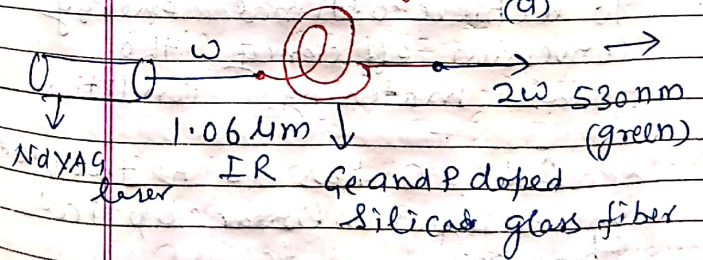 (a)
ω
2ω 530nm
1.06 μm
(green)
NdYAG
laser
IR
Ge and P doped
Silica glass fiber